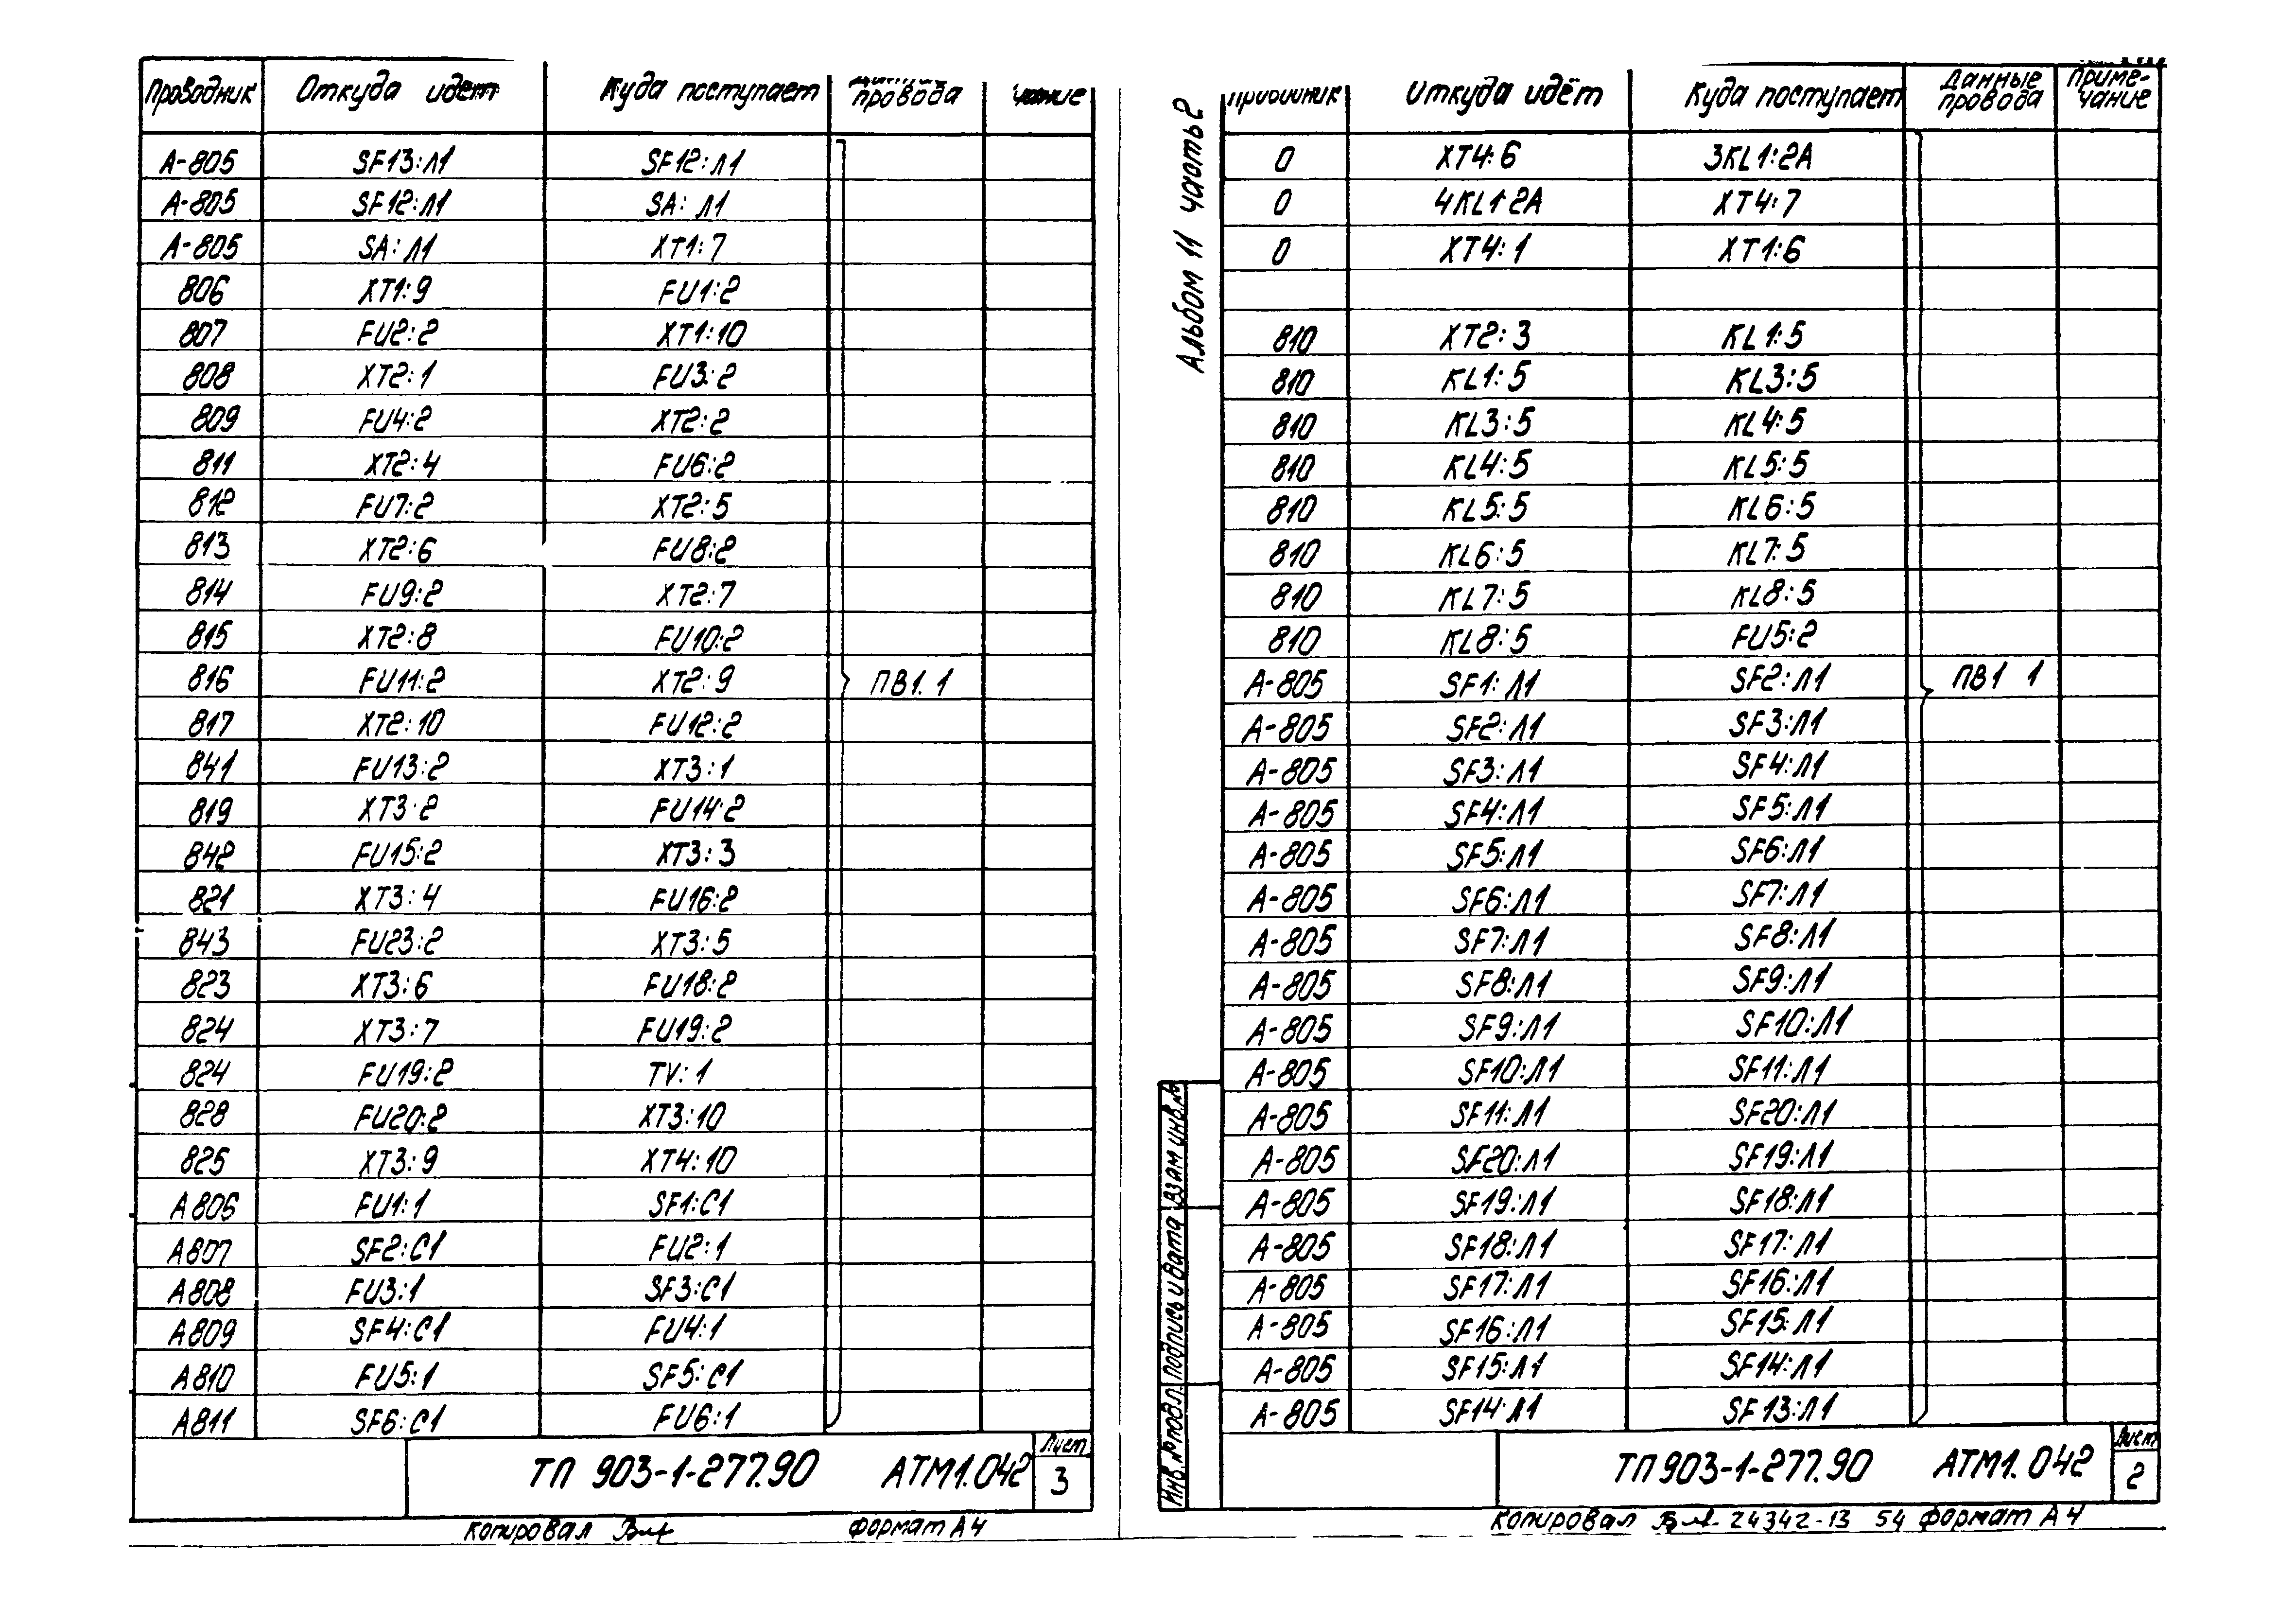 Проводник Откуда идет Куда поступает провода чание
А-805 SF13:Л1 SF12:Л1
А-805 SF12:Л1 SA:Л1
А-805 SA:Л1 XT1:7
806 XT1:9 FU1:2
807 FU2:2 XT1:10
808 XT2:1 FU3:2
809 FU4:2 XT2:2
811 XT2:4 FU6:2
812 FU7:2 XT2:5
813 XT2:6 FU8:2
814 FU9:2 XT2:7
815 XT2:8 FU10:2
816 FU11:2 XT2:9 ПВ1.1
817 XT2:10 FU12:2
841 FU13:2 XT3:1
819 XT3:2 FU14:2
842 FU15:2 XT3:3
821 XT3:4 FU16:2
843 FU23:2 XT3:5
823 XT3:6 FU18:2
824 XT3:7 FU19:2
824 FU19:2 TV:1
828 FU20:2 XT3:10
825 XT3:9 XT4:10
А806 FU1:1 SF1:С1
А807 SF2:С1 FU2:1
А808 FU3:1 SF3:С1
А809 SF4:С1 FU4:1
А810 FU5:1 SF5:С1
А811 SF6:С1 FU6:1
ТП 903-1-277.90 АТМ1.042
Лист
3
Копировал Формат А4
Альбом 11 часть 2
Проводник Откуда идёт Куда поступает Данные провода Приме-чание
0 XT4:6 3KL1:2A
0 4KL1:2A XT4:7
0 XT4:1 XT1:6
810 XT2:3 KL1:5
810 KL1:5 KL3:5
810 KL3:5 KL4:5
810 KL4:5 KL5:5
810 KL5:5 KL6:5
810 KL6:5 KL7:5
810 KL7:5 KL8:5
810 KL8:5 FU5:2
А-805 SF1:Л1 SF2:Л1 ПВ1 1
А-805 SF2:Л1 SF3:Л1
А-805 SF3:Л1 SF4:Л1
А-805 SF4:Л1 SF5:Л1
А-805 SF5:Л1 SF6:Л1
А-805 SF6:Л1 SF7:Л1
А-805 SF7:Л1 SF8:Л1
А-805 SF8:Л1 SF9:Л1
А-805 SF9:Л1 SF10:Л1
А-805 SF10:Л1 SF11:Л1
А-805 SF11:Л1 SF20:Л1
А-805 SF20:Л1 SF19:Л1
А-805 SF19:Л1 SF18:Л1
А-805 SF18:Л1 SF17:Л1
А-805 SF17:Л1 SF16:Л1
А-805 SF16:Л1 SF15:Л1
А-805 SF15:Л1 SF14:Л1
А-805 SF14:Л1 SF13:Л1
Инв.№подл. Подпись и дата Взам инв.№
ТП 903-1-277.90 АТМ1.042
Лист
2
Копировал 24342-13 54 Формат А4